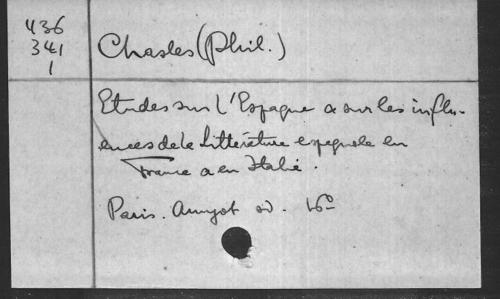 436
341
1
Chasles (Phil.)
Etudes sur L'Espagne a sur les influ-
ences de la littérature espagnole en
France a en Italie.
Paris. Amyot sd. 16º